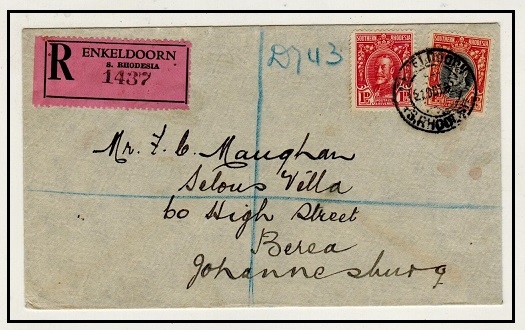 R
ENKELDOORN
S. RHODESIA
1437
D743
SOUTHERN RHODESIA
1D
1D
SOUTHERN RHODESIA
Mr. F. C. Maughan
Selous Villa
60 High Street
Berea
Johannesburg